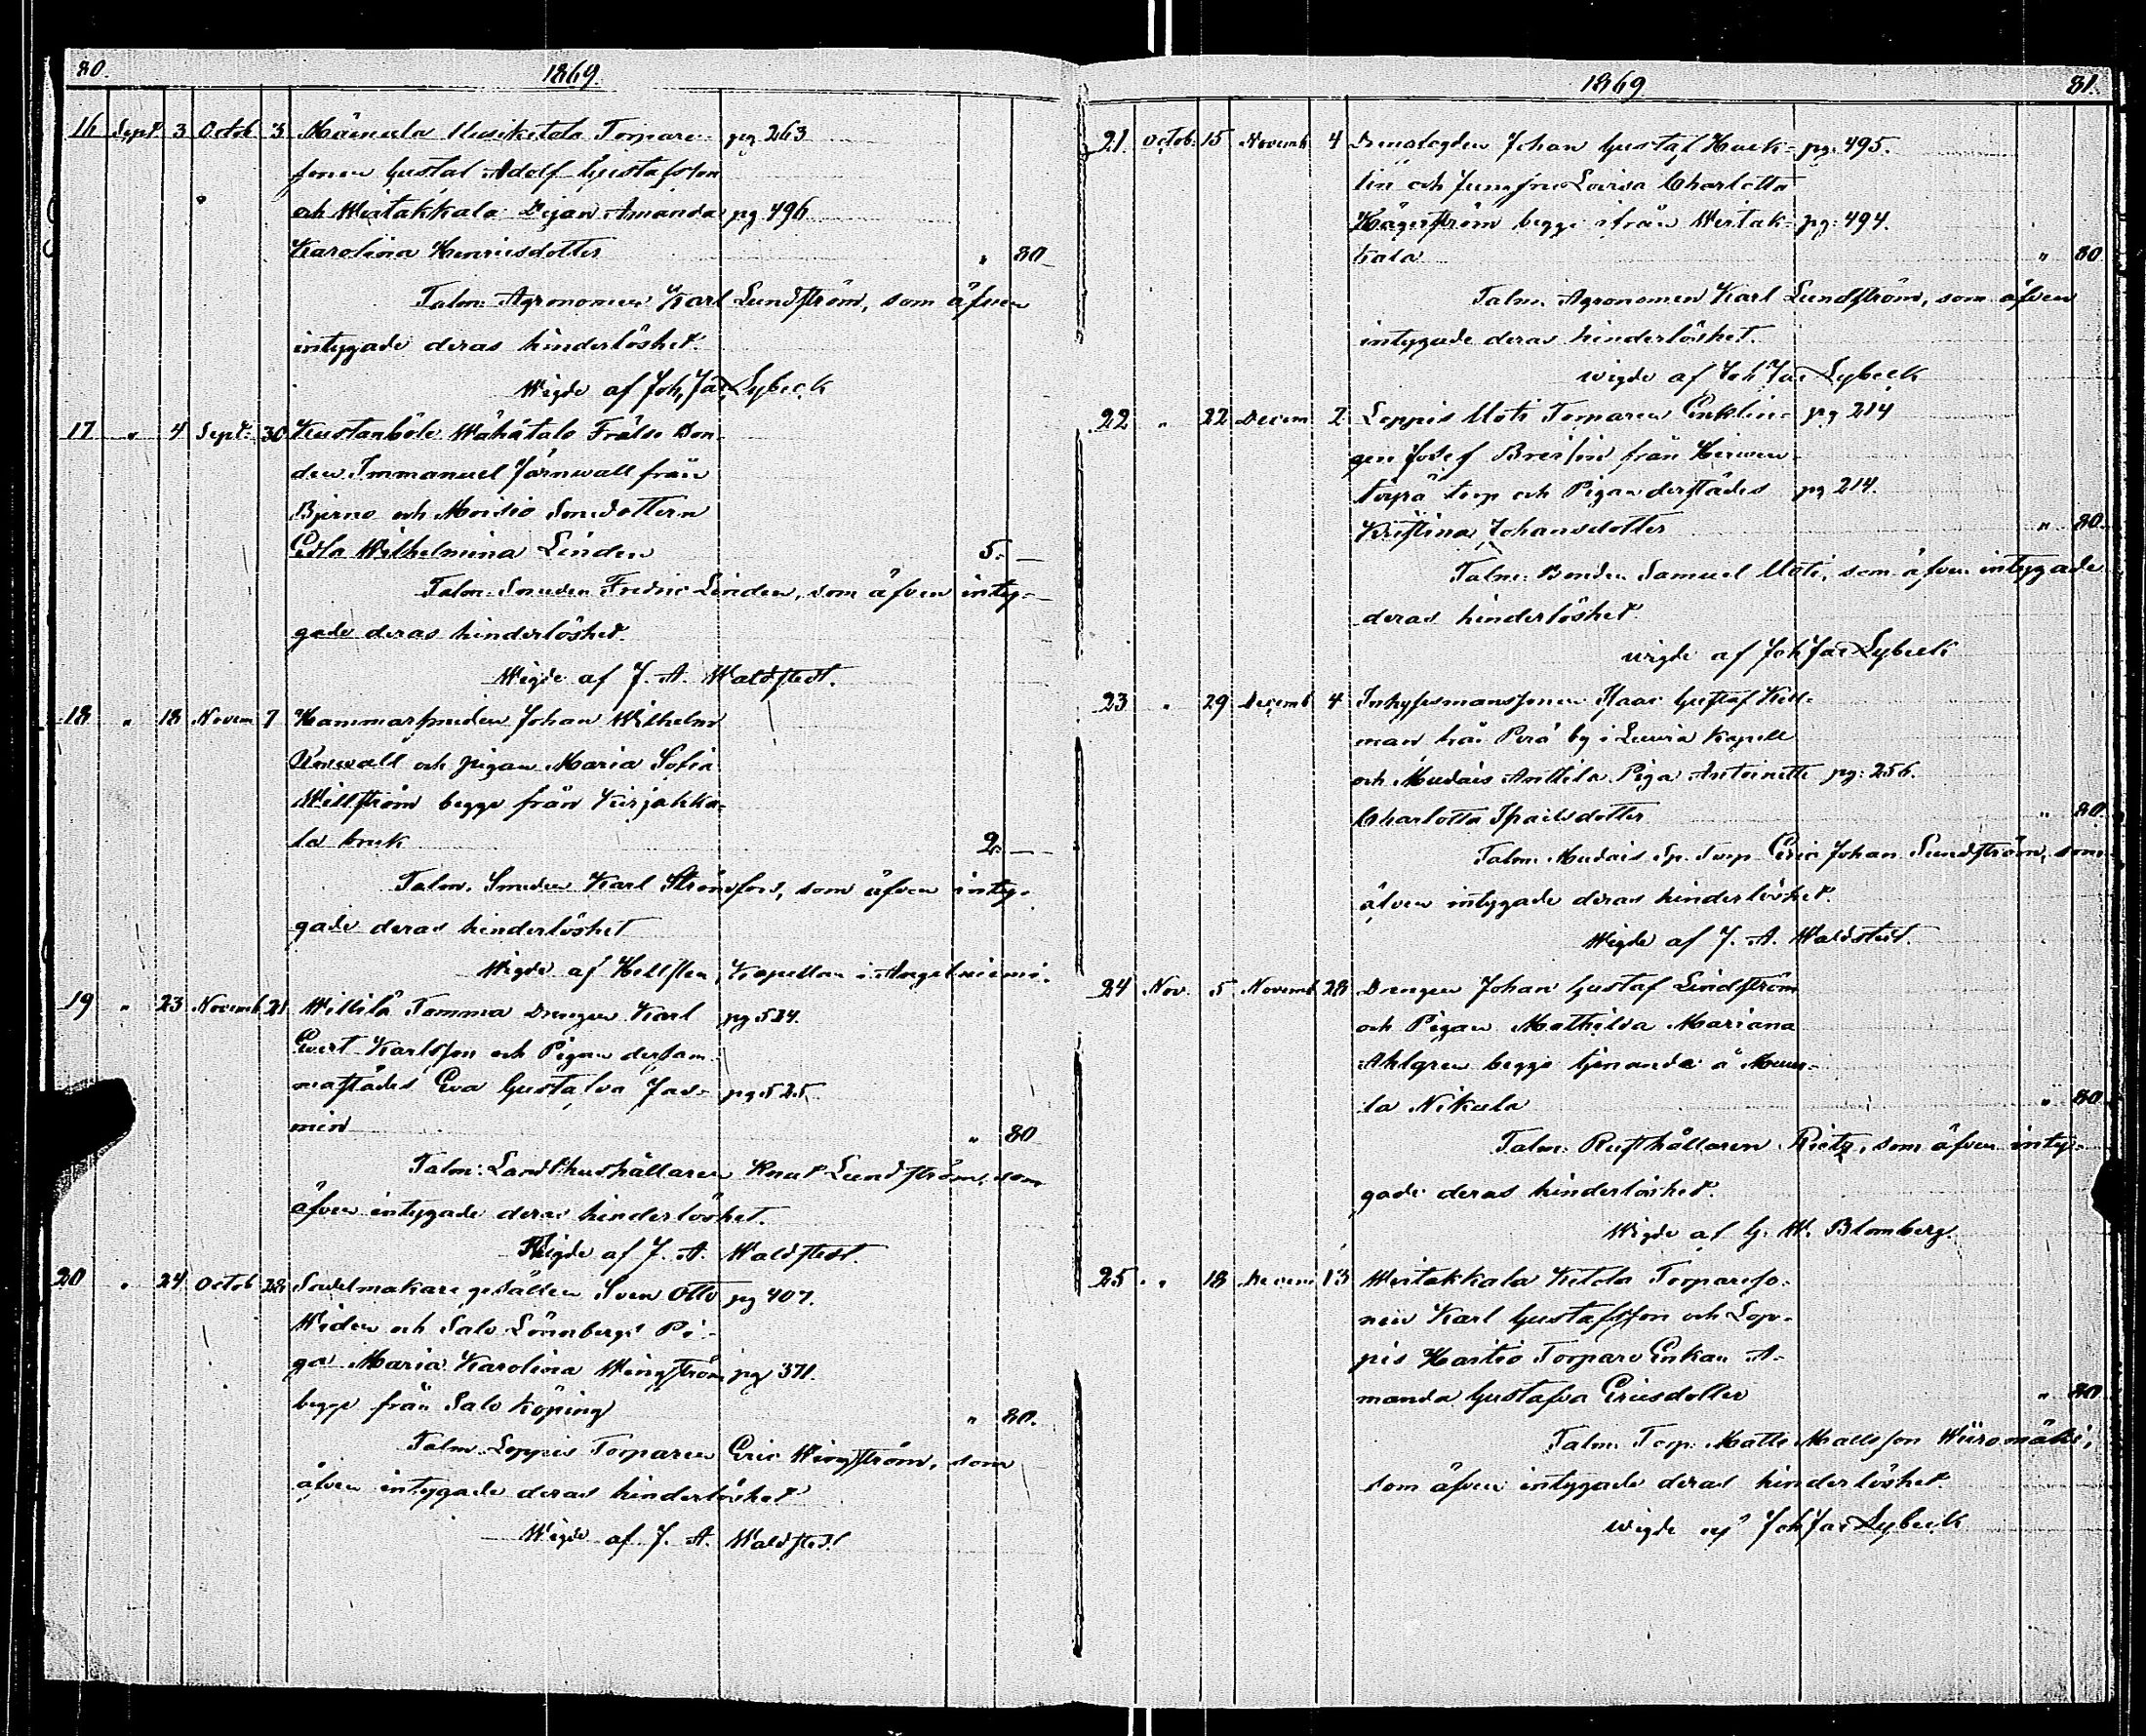 80. 1869.
16 Sept. 3 Octob 3 Märiula Uusitalo Torpare- pg 263
sonen Gustaf Adolf Gustafsson
och Wiitakkala Pigan Amanda pg 496
Karolina Henricsdotter " 80
Talm: Agronomen Karl Lundström, som äfven
intygade deras hinderlöshet.
Wigde af Joh, Jac, Lybeck
17 " 4 Sept: 30 Kustanböle Wähätalo Frälse Bon-
den Immanuel Järnwall från
Bjerno och Moisio Smedottern
Edla Wilhelmina Linden 5. —
Talm. Smeden Fredric Linden, som äfven inty-
gade deras hinderlöshet.
Wigde af J. A. Waldstedt.
18 " 18 Novem 7 Hammarsmeden Johan Wilhelm
Enwall och pigan Maria Sofia
Willström begge från Kirjakka-
la bruk 2. —
Talm. Smeden Karl Strömfors, som äfven inty-
gade deras hinderlöshet
Wigde af Hellsten, Kapellan i Angelniemi.
19 " 23 Novemb 21 Willilä Tamma Drengen Karl pg 524.
Evert Karlsson och Pigan dersam-
mastädes Eva Gustafva Jas- pg 525
min " 80
Talm: Landthushållaren Knut Lundström, som
äfven intygade deras hinderlöshet.
Wigde af J. A. Waldstedt.
20 " 24 Octob 28 Sadelmakare gesällen Sven Otto pg 407.
Widen och Salo Lönnbergs Pi-
ga Maria Karolina Wingström pg 371.
begge från Salo Köping " 80.
Talm Loppis Torparen Eric Wingström, som
äfven intygade deras hinderlöshet
Wigde af J. A. Waldstedt
1869 81.
21. Octob: 15 Novemb 4 Johan Gustaf Hack- pg. 495.
lin och Jungfru Lovisa Charlotta
Hägerström begge ifrån Wiitak- pg: 494.
kala " 80
Talm. Agronomen Karl Lundström, som äfven
intygade deras hinderlöshet.
wigde af Joh Jac Lybeck
22 " 22 Decem 2 Loppis Uoti Torparen Enklin- pg 214
gen Josef från
torp och Pigan derstädes pg 214.
Kristina Johansdotter " 80.
Talm: Bonden Samuel Uoti, som äfven intygade
deras hinderlöshet
wigde af Joh Jac Lybeck
23 " 29 Decemb 4 Inhysesmanssonen Isaac Gustaf Kell-
man från Perä by i Kapell
och Mudais Anttila Piga Antoinette pg: 256.
Charlotta Isacsdotter " 80.
Talm. Mudais Sp. Torp Eric Johan Sundström, som
äfven intygade deras hinderlöshet.
Wigde af J. A. Waldstedt.
24 Nov. 5 Novemb 28 Drengen Johan Gustaf Lindström
och Pigan Mathilda Mariana
Ahlgren begge tjenande å Muur-
la Nikula " 80
Talm: Rusthållaren Rietz, som äfven inty-
gade deras hinderlöshet.
Wigde af G. W. Blomberg.
25 " 18 Decem 13 Wiitakkala Ketola Torpareso-
nen Karl Gustafsson och Lop-
pis Haitio Torpare Enkan A-
manda Gustafva Ericsdotter " 80
Talm. Torp. Matts Mattsson Wiiromäki,
som äfven intygade deras hinderlöshet.
wigde af Joh Jac Lybeck